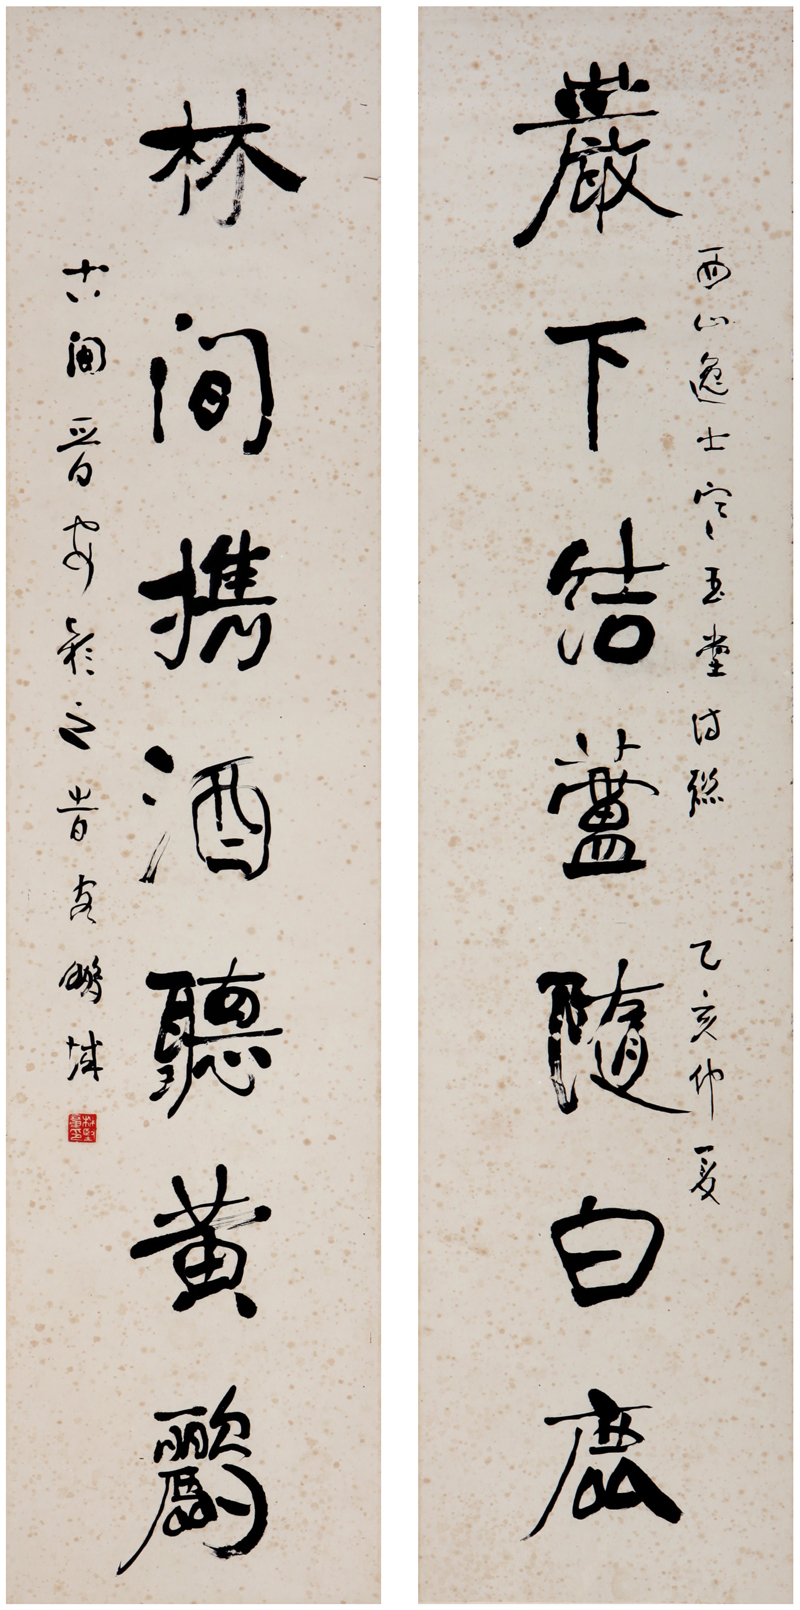 巖下結蘆隨白鹿
西山逸士寒玉堂詩聯 乙亥仲夏
林間携酒聽黃鸝
古閩晉安之旹客鵬城